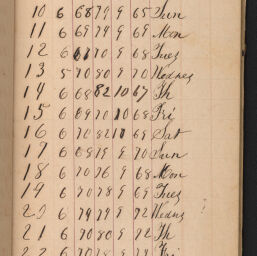 10 6 68 79 9 65 Sun
11 6 69 74 9 69 Mon
12 6 61 70 9 68 Tues
13 5 70 80 9 70 Wednes
14 6 69 82 10 67 Th
15 6 69 70 10 68 Fri
16 6 70 82 10 69 Sat
17 6 68 79 9 70 Sun
18 6 70 76 9 68 Mon
19 6 70 78 9 69 Tues
20 6 74 79 9 72 Wedns ?
21 6 70 80 9 72 Th
22 6 70 78 9 Fri